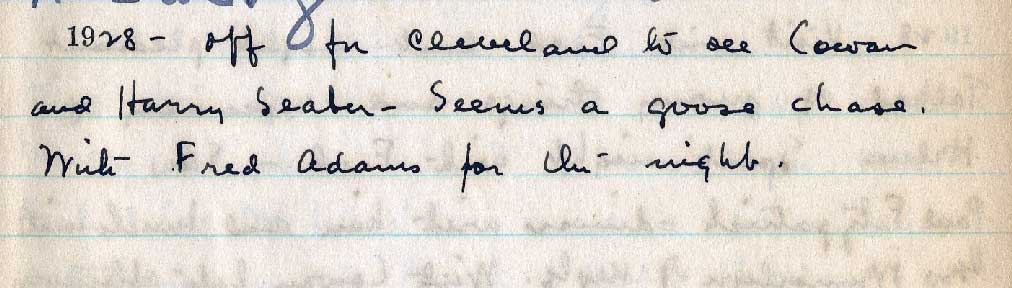 1928 - off for Cleveland to see Cowan
and Harry Seaber - Seems a goose chase.
With Fred Adams for the night.